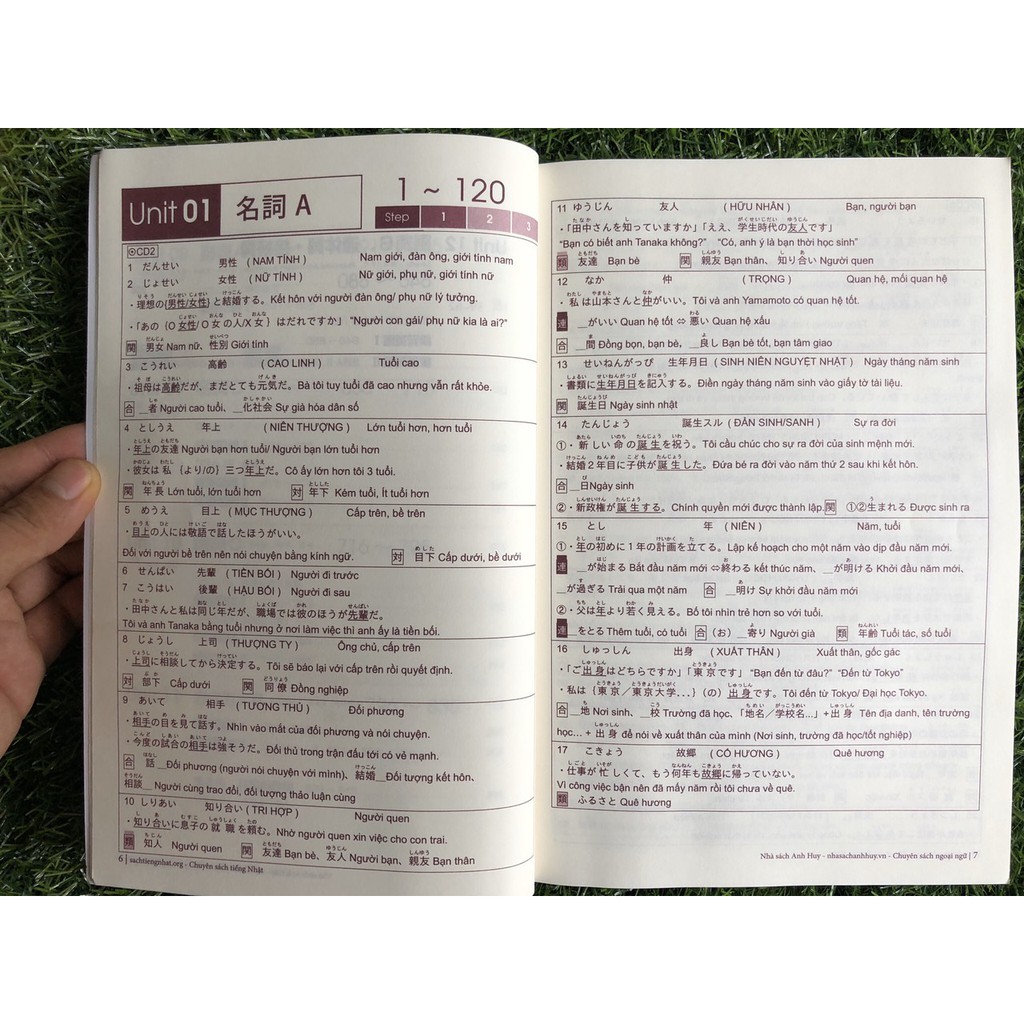 Unit 01 名詞 A
1 ~ 120
Step 1 2 3
CD2
1 だんせい 男性 ( NAM TÍNH ) Nam giới, đàn ông, giới tính nam
2 じょせい 女性 ( NỮ TÍNH ) Nữ giới, phụ nữ, giới tính nữ
・理想の{男性/女性}と結婚する。Kết hôn với người đàn ông/ phụ nữ lý tưởng.
・「あの {O 女性/ O 女の人/X 女 } はだれですか」 “Người con gái/ phụ nữ kia là ai?”
関 男女 Nam nữ、性別 Giới tính
3 こうれい 高齢 ( CAO LINH ) Tuổi cao
・祖母は高齢だが、まだとても元気だ。Bà tôi tuy tuổi đã cao nhưng vẫn rất khỏe.
合 __者 Người cao tuổi、__化社会 Sự già hóa dân số
4 としうえ 年上 ( NIÊN THƯỢNG ) Lớn tuổi hơn, hơn tuổi
・年上の友達 Người bạn hơn tuổi/ Người bạn lớn tuổi hơn
・彼女は私 {より/の} 三つ年上だ。Cô ấy lớn hơn tôi 3 tuổi.
関 年長 Lớn tuổi, lớn tuổi hơn 対 年下 Kém tuổi, Ít tuổi hơn
5 めうえ 目上 ( MỤC THƯỢNG ) Cấp trên, bề trên
・目上の人には敬語で話したほうがいい。
Đối với người bề trên nên nói chuyện bằng kính ngữ. 対 目下 Cấp dưới, bề dưới
6 せんぱい 先輩 ( TIÊN BỐI ) Người đi trước
7 こうはい 後輩 ( HẬU BỐI ) Người đi sau
・田中さんと私は同じ年だが、職場では彼のほうが先輩だ。
Tôi và anh Tanaka bằng tuổi nhưng ở nơi làm việc thì anh ấy là tiền bối.
8 じょうし 上司 ( THƯỢNG TY ) Ông chủ, cấp trên
・上司に相談してから決定する。Tôi sẽ báo lại với cấp trên rồi quyết định.
対 部下 Cấp dưới 関 同僚 Đồng nghiệp
9 あいて 相手 ( TƯƠNG THỦ ) Đối phương
・相手の目を見て話す。Nhìn vào mắt của đối phương và nói chuyện.
・今度の試合の相手は強そうだ。Đối thủ trong trận đấu tới có vẻ mạnh.
合 話__Đối phương (người nói chuyện với mình)、結婚__Đối tượng kết hôn、
相談__ Người cùng trao đổi, đối tượng thảo luận cùng
10 しりあい 知り合い ( TRI HỢP ) Người quen
・知り合いに息子の就職を頼む。Nhờ người quen xin việc cho con trai.
類 知人 Người quen 関 友達 Bạn bè、友人 Người bạn、親友 Bạn thân
6 | sachtiengnhat.org - Chuyên sách tiếng Nhật
11 ゆうじん 友人 ( HỮU NHÂN ) Bạn, người bạn
・「田中さんを知っていますか」「ええ、学生時代の友人です」
“Bạn có biết anh Tanaka không?” “Có, anh ý là bạn thời học sinh”
類 友達 Bạn bè 関 親友 Bạn thân、知り合い Người quen
12 なか 仲 ( TRỌNG ) Quan hệ, mối quan hệ
・私は山本さんと仲がいい。Tôi và anh Yamamoto có quan hệ tốt.
連 __がいい Quan hệ tốt ⇔ 悪い Quan hệ xấu
合 __間 Đồng bọn, bạn bè、__良し Bạn bè tốt, bạn tâm giao
13 せいねんがっぴ 生年月日 ( SINH NIÊN NGUYỆT NHẬT ) Ngày tháng năm sinh
・書類に生年月日を記入する。Điền ngày tháng năm sinh vào giấy tờ tài liệu.
関 誕生日 Ngày sinh nhật
14 たんじょう 誕生スル ( ĐẢN SINH/SANH ) Sự ra đời
①・新しい命の誕生を祝う。Tôi cầu chúc cho sự ra đời của sinh mệnh mới.
・結婚２年目に子供が誕生した。Đứa bé ra đời vào năm thứ 2 sau khi kết hôn.
合 __日Ngày sinh
②・新政権が誕生する。Chính quyền mới được thành lập. 関 ①②生まれる Được sinh ra
15 とし 年 ( NIÊN ) Năm, tuổi
①・年の初めに１年の計画を立てる。Lập kế hoạch cho một năm vào dịp đầu năm mới.
連 __が始まる Bắt đầu năm mới ⇔終わる kết thúc năm、__が明ける Khởi đầu năm mới、
__が過ぎる Trải qua một năm 合 __明け Sự khởi đầu năm mới
②・父は年より若く見える。Bố tôi nhìn trẻ hơn so với tuổi.
連 __をとる Thêm tuổi, có tuổi 合（お）__寄り Người già 類 年齢 Tuổi tác, số tuổi
16 しゅっしん 出身 ( XUẤT THÂN ) Xuất thân, gốc gác
・「ご出身はどちらですか」「東京です」 “Bạn đến từ đâu?” “Đến từ Tokyo”
・私は {東京／東京大学...}（の）出身です。Tôi đến từ Tokyo/ Đại học Tokyo.
合 __地 Nơi sinh、__校 Trường đã học、「地名／学校名...」+出身 Tên địa danh, tên trường
học... + 出身 để nói về xuất thân của mình (Nơi sinh, trường đã học/tốt nghiệp)
17 こきょう 故郷 ( CỐ HƯƠNG ) Quê hương
・仕事が忙しくて、もう何年も故郷に帰っていない。
Vì công việc bận nên đã mấy năm rồi tôi chưa về quê.
類 ふるさと Quê hương
Nhà sách Anh Huy - nhasachanhhuy.vn - Chuyên sách ngoại ngữ | 7